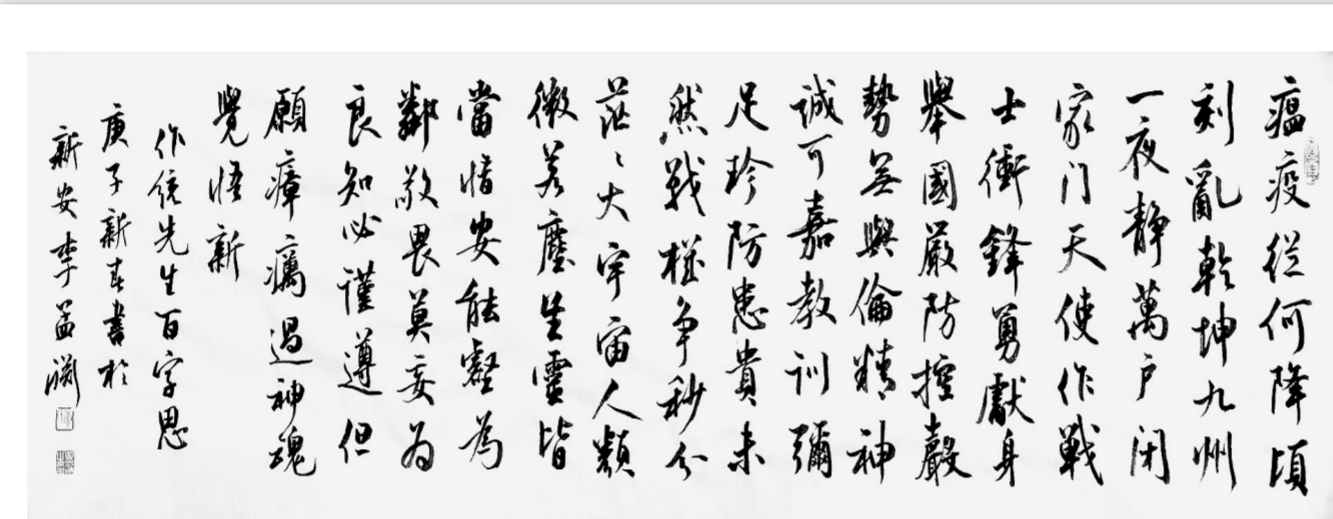 瘟疫從何降頃
刻亂乾坤九州
一夜靜萬戶闭
家门天使作戰
士衝鋒勇獻身
舉國嚴防控聲
勢無與倫精神
誠可嘉教训彌
足珍防患貴未
然戰楼争秒分
茫茫大宇宙人類
微若塵生靈皆
當惜安能壑為
鄰敬畏莫妄为
良知必謹遵但
願瘴癘過神魂
覺悟新
作统先生百字思
庚子新春書於
新安李孟渊